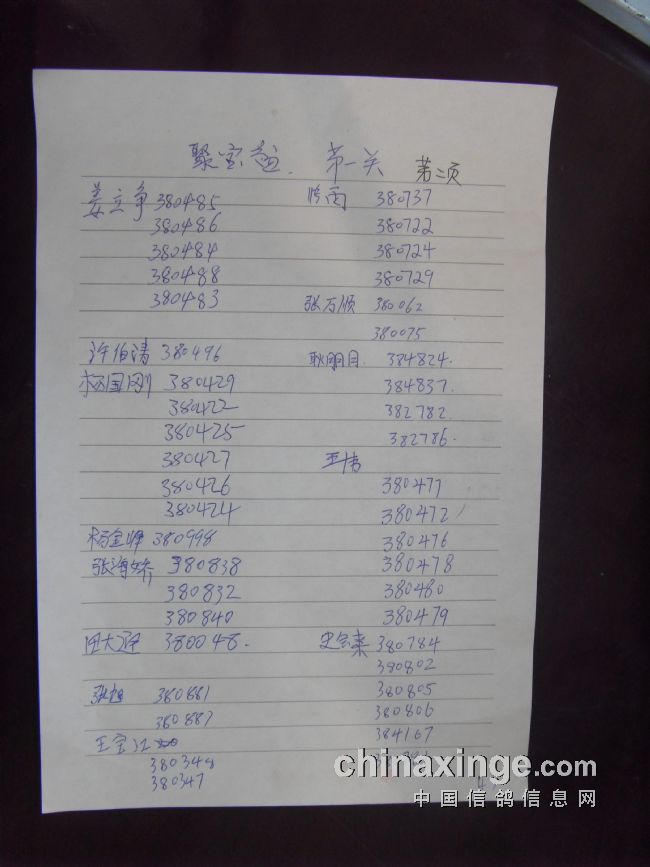 聚宝盆 第一关 第二页
姜立争 380485
380486
380484
380488
380483
许伯涛 380496
杨国刚 380429
380422
380425
380427
380426
380424
杨金 380998
张海娇 380838
380832
380840
田大 380048.
张旭 380881
380887
王宝江
380348
380347
380737
380722
380724
380729
张万顺 380062
380075
耿明月 384824.
384837.
382782.
382786.
王伟
380477
380472
380476
380478
380480
380479
380784
380802
380805
380806
384167
chinaxinge.com
中国信鸽信息网